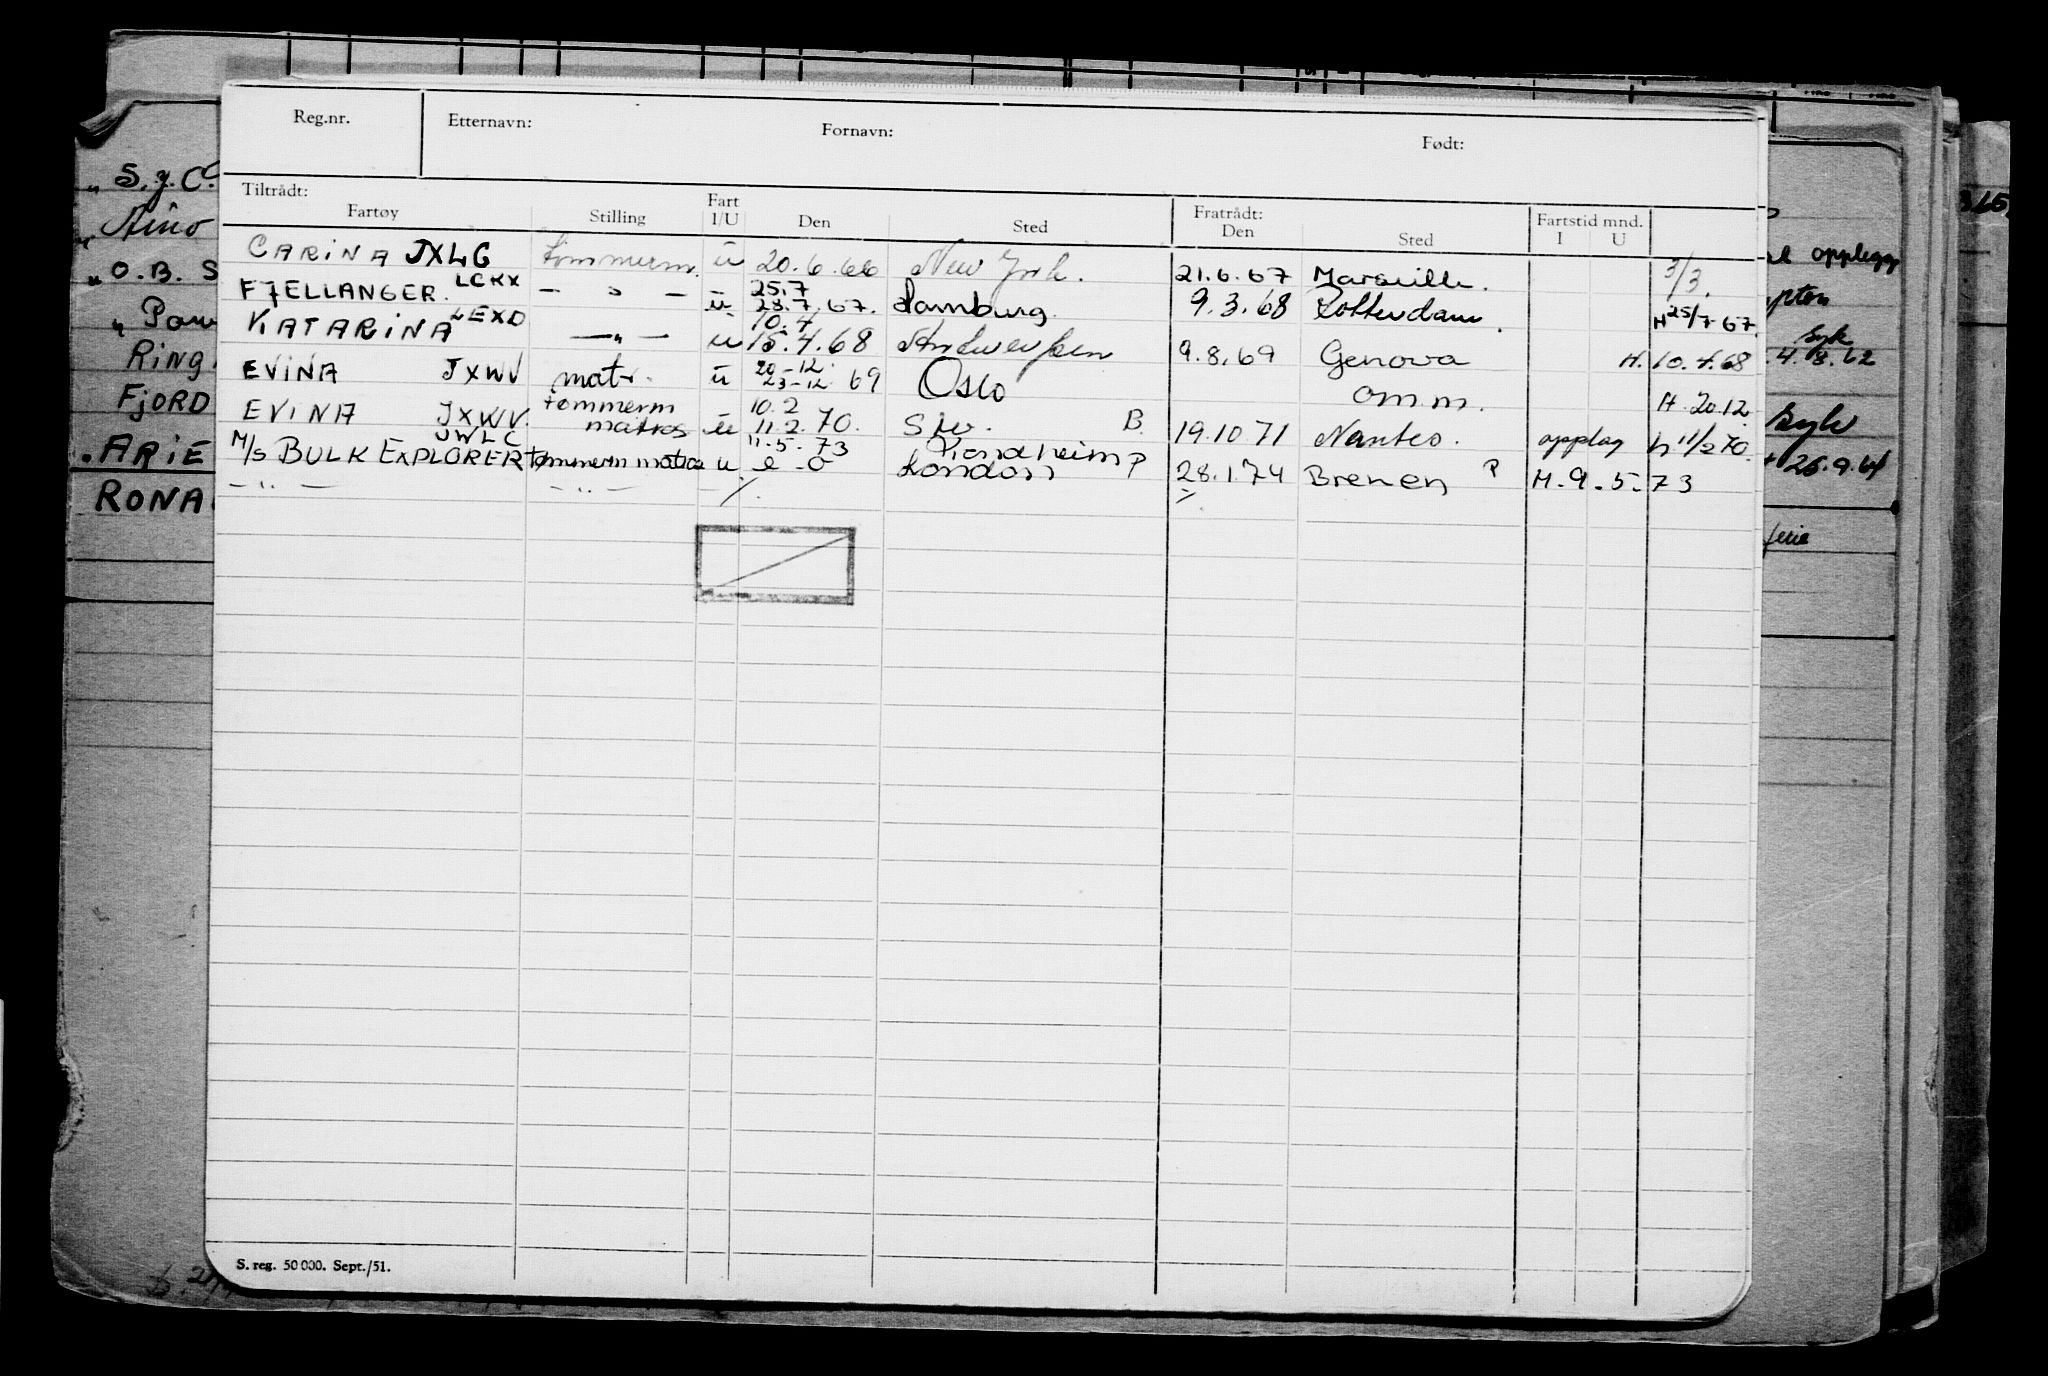 Reg.nr. Etternavn: Fornavn: Født:
Tiltrådt: Fartøy Stilling Fart I/U Den Sted Fratrådt: Den Sted Fartstid mnd. I U
CARINA JXLG tømmerm. u 20.6.66 New York. 21.6.67 Marseille. 3/3.
FJELLANGER. LCKX — " — u 25.7 28.7.67. Hamburg. 9.3.68 Rotterdam. H 25/7-67.
KATARINA LEXD — " — u 10.4 15.4.68 Andwerpen 9.8.69 Genova H. 10.4.68
EVINA JXWV matr. u 20-12. 23-12. 69 Oslo omm. H. 20.12
EVINA JXWV. tømmerm matros u 10.2 11.2.70. B. 19.10 71 Nantes. opplag h 11/2 70.
M/S BULK EXPLORER JWLC tømmerm matros u 11-5-73 Trondheim London P 28.1.74 Bremen P H-9-5-73
— " — — " — /.
S. reg. 50 000. Sept./51.
" S.J. C
Aino
" O.B. S
RING
FJORD
ARIE
RONA
opplegg
syk
4.8.62
syk
26.9.64
ferie